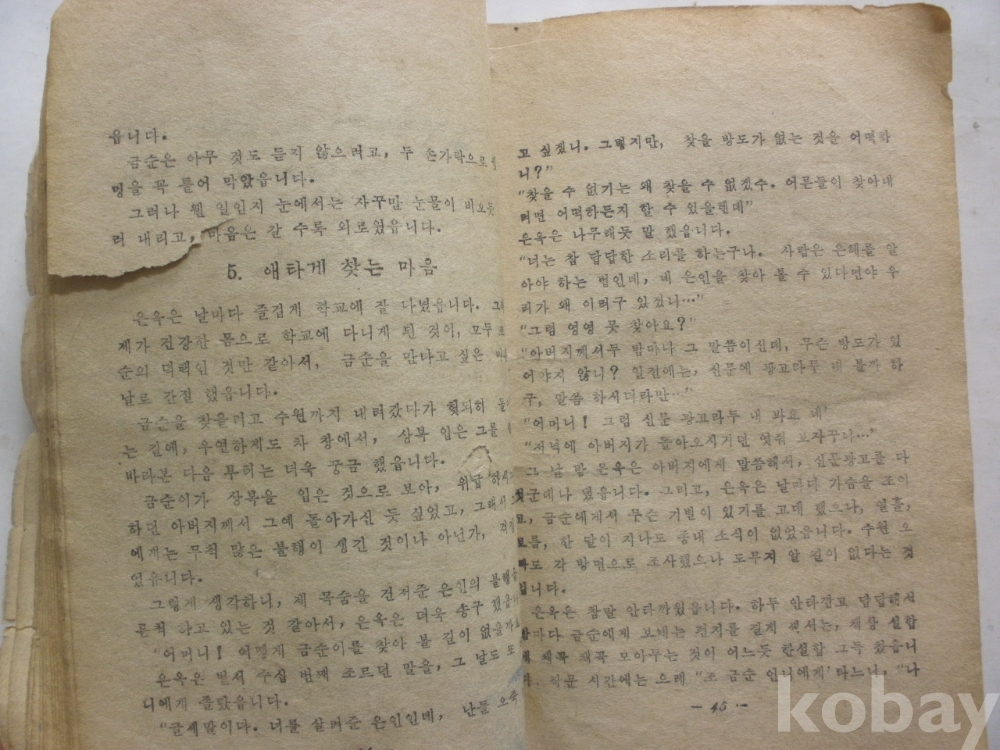 읍니다.
금순은 아무 것도 듣지 않으려고, 두 손가락으로
멍을 꼭 틀어 막았읍니다.
그러나 웬 일인지 눈에서는 자꾸만 눈물이 비오듯
러 내리고, 마음은 갈 수록 외로웠읍니다.
5. 애타게 찾는 마음
은옥은 날마다 즐겁게 학교에 잘 다녔읍니다.
제가 건강한 몸으로 학교에 다니게 된 것이, 모두
순의 덕택인 것만 같아서, 금순을 만나고 싶은
날로 간절 했읍니다.
금순을 찾을려고 수원까지 내려갔다가 헛되히
는 길에, 우연하게도 차 창에서, 상복 입은 그를
바라본 다음 부터는 더욱 궁금 했읍니다.
금순이가 상복을 입은 것으로 보아, 위급 하시
하던 아버지께서 그예 돌아가신 듯 싶었고, 그래서
에게는 무척 많은 불행이 생긴 것이나 아닌가,
었읍니다.
그렇게 생각하니, 제 목숨을 건져준 은인의 불행을
른척 하고 있는 것 같아서, 은옥은 더욱 송구 했읍니
"어머니! 어떻게 금순이를 찾아 볼 길이 없을까요
은옥은 벌써 수십 번째 조르던 말을, 그 날도 또
니에게 졸랐읍니다.
"글세말이다. 너를 살려준 은인인데, 난들 오죽
고 싶겠니. 그렇지만, 찾을 방도가 없는 것을 어떡하
니?"
"찾을 수 없기는 왜 찾을 수 없겠수. 어른들이 찾아내
려면 어떡하든지 할 수 있을텐데"
은옥은 나무래듯 말 했읍니다.
"너는 참 답답한 소리를 하는구나. 사람은 은혜를 알
아야 하는 법인데, 네 은인을 찾아 볼 수 있다면야 우
리가 왜 이러구 있겠니…"
"그럼 영영 못 찾아요?"
"아버지께서두 밤마다 그 말씀이신데, 무슨 방도가 있
어야지 않니? 일전에는, 신문에 광고라두 내 볼까 하
구, 말씀 하시더라만…"
"어머니! 그럼 신문 광고라두 내 봐요 네"
"저녁에 아버지가 돌아오시거던 엿쭤 보자꾸나…"
그 날 밤 은옥은 아버지에게 말씀해서, 신문광고를 다
군데나 냈읍니다. 그리고, 은옥은 날마다 가슴을 조이
고, 금순에게서 무슨 기별이 있기를 고대 했으나, 열흘,
보름, 한 달이 지나도 종내 소식이 없었읍니다. 수원 오
빠도 각 방면으로 조사했으나 도무지 알 길이 없다는 것
입니다.
은옥은 참말 안타까웠읍니다. 하두 안타깝고 답답해서
밤마다 금순에게 보내는 편지를 길게 써서는, 책상 설합
에 채곡 채곡 모아두는 것이 어느듯 한설합 그득 찼읍니
다. 작문 시간에는 으레 "조 금순 언니에게"라느니, "나
— 45 —
kobay